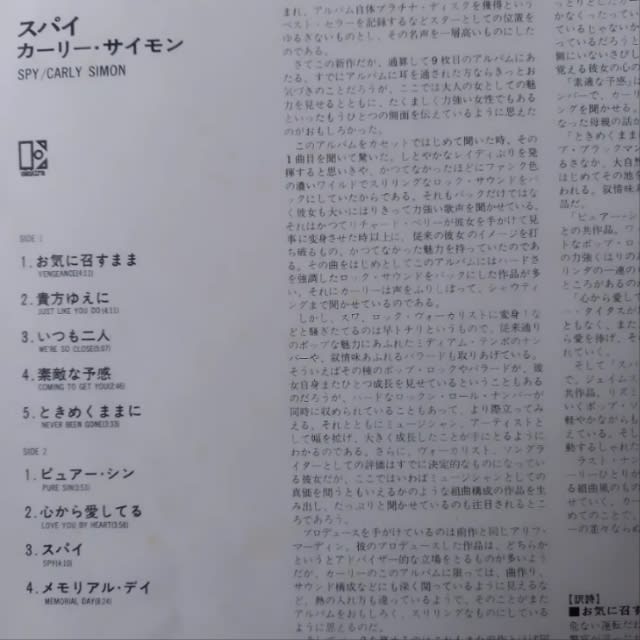 スパイ
カーリー・サイモン
SPY/CARLY SIMON
SIDE 1
1.お気に召すまま
VENGEANCE(4:11)
2.貴方ゆえに
JUST LIKE YOU DO(4:11)
3.いつも二人
WE'RE SO CLOSE(5:07)
4.素敵な予感
COMING TO GET YOU(2:46)
5.ときめくままに
NEVER BEEN GONE(3:33)
SIDE 2
1.ピュアー・シン
PURE SIN(3:53)
2.心から愛してる
LOVE YOU BY HEART(3:58)
3.スパイ
SPY(4:10)
4.メモリアル・デイ
MEMORIAL DAY(8:24)
まれ、アルバム自体プラチナ・ディスクを獲得という
スト・セラーを記録するなどスターとしての位置を
ゆるぎないものとし、その名声を一層高いものにした
のである。
さてこの新作だが、通算して9枚目のアルバムにあ
たる。すでにアルバムに耳を通された方ならきっとお
気づきのことだろうが、ここでは大人の女としての魅
力を見せるとともに、たくましく力強い女性でもある
といったもうひとつの側面を伝えているように思えた
のがおもしろかった。
このアルバムをカセットではじめて聞いた時、その
1曲目を聞いて驚いた。しとやかなレイディぶりを発
揮すると思いきや、かつてなかったほどにファンク色
の濃いワイルドでスリリングなロック・サウンドをバ
ックにしていたからである。それもバックだけではな
く彼女も大いにはりきって力強い歌声を聞かせている。
それはかつてリチャード・ペリーが彼女を手がけて見
事に変身させた時以上に、従来の彼女のイメージを打
ち破るもの、かつてなかった魅力を持っていたのであ
る。その曲をはじめとしてこのアルバムにはハードさ
を強調したロック・サウンドをバックにした作品が多
い。それにカーリーは声をふりしぼって、シャウティ
ングで聞かせているのである。
しかし、スワ、ロック・ヴォーカリストに変身！な
どと騒ぎたてるのは早トチリというもので、従来通り
のポップな魅力にあふれたミディアム・テンポのナン
バーや、叙情味あふれるバラードも取りあげている。
そういえばその種のポップ・ロックやバラードが、彼
女自身またひとつ成長を見せているということもある
のだろうが、ハードなロックン・ロール・ナンバーが
同時に収められていることもあって、より際立ってみ
える。それとともにミュージシャン・アーティストと
して幅を拡げ、大きく成長したことが手にとるように
わかるのである。さらに、ヴォーカリスト、ソングラ
イターとしての評価はすでに決定的なものになってい
る彼女だが、ここではいわばミュージシャンとしての
真価を問うともいえるかのような組曲構成の作品を生
み出し、たっぷりと聞かせているのも注目されるとこ
ろであろう。
プロデュースを手がけているのは前作と同じアリフ・
マーディン。彼のプロデュースした作品は、どちらか
というとアドバイザー的な立場をとるものが多いよう
だが、カーリーのこのアルバムに限っては、曲作り、
サウンド構成などにも深く関っているように見えるな
ど、熱の入れ方も違っているようで、そのことがまた
アルバムをおもしろく、スリリングなものにしている
ように思えるのだ。
【訳詩】
■お気に召す